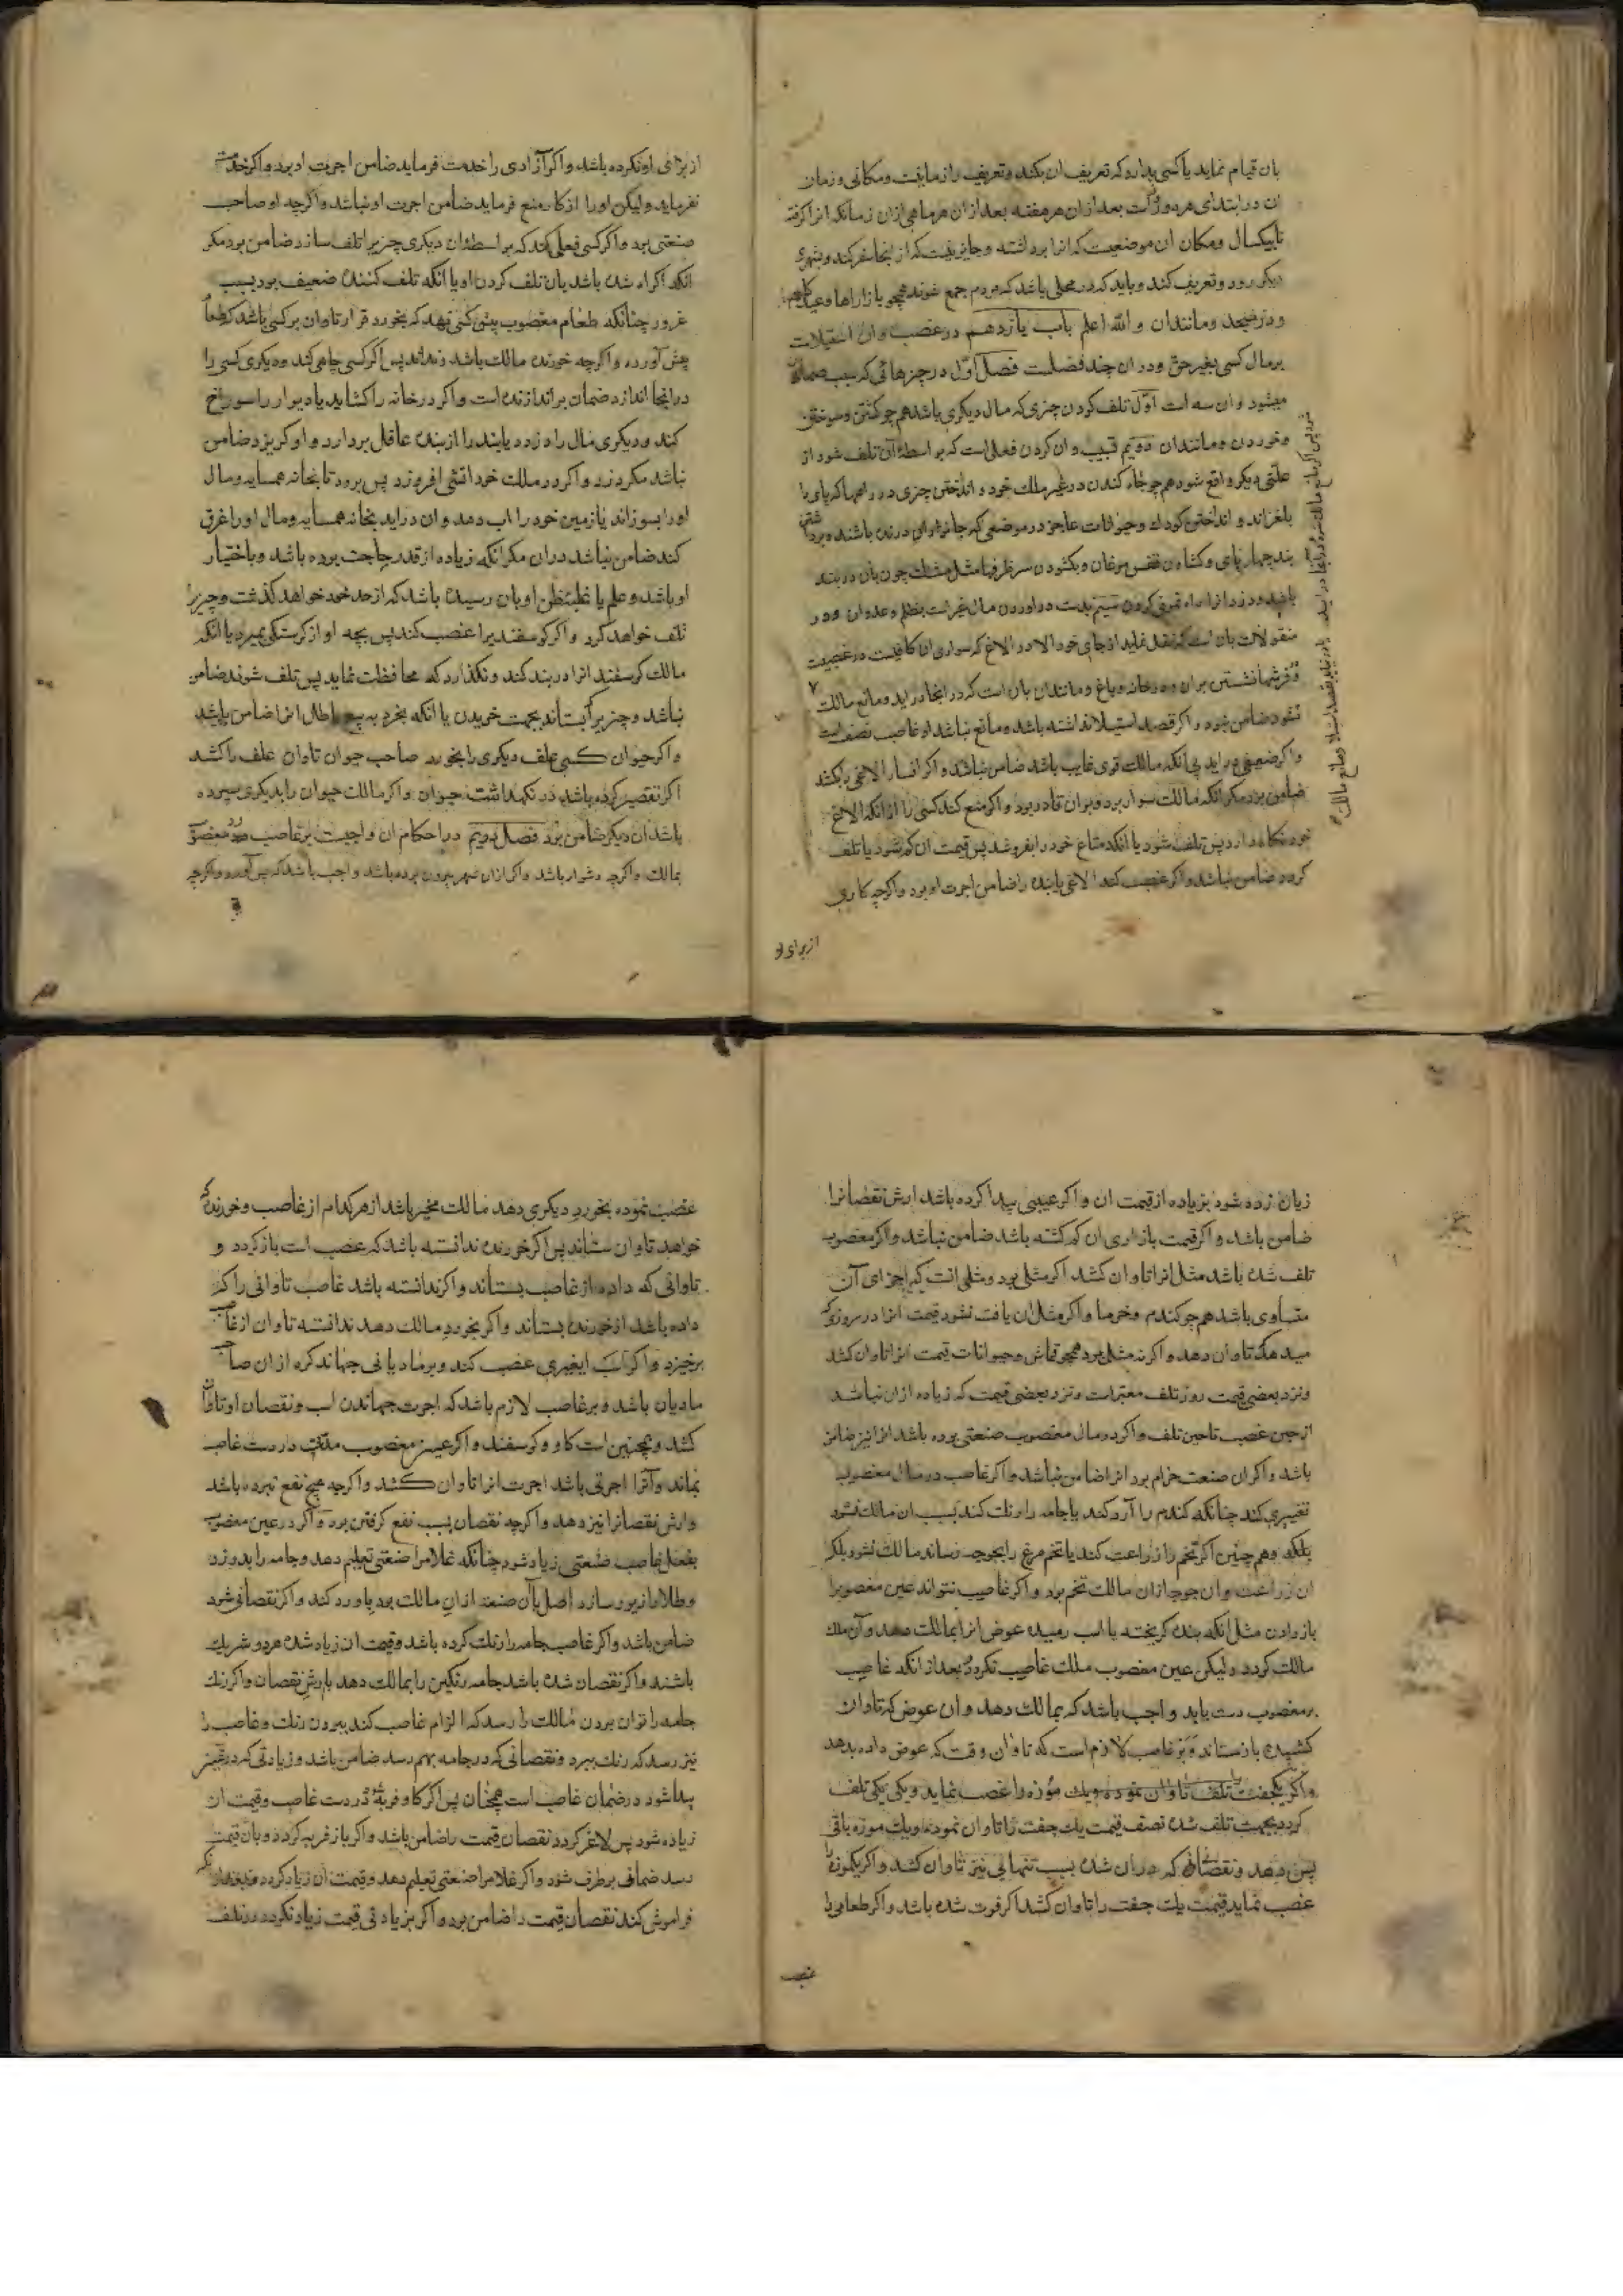 بان قیام نماید یا کسی بدارد که تعریف ان بکند و تعریف را زمانیست و مکانی و زمان
ان در ابتدای هر دو روز است بعد از ان هر هفته بعد از ان هر ماهی از ان زمانکه انرا کرفته
تا یکسال و مکان ان موضعیست که انرا برداشته و جایز نیست که از انجا سفر کند و بشهری
دیکر رود و تعریف کند و باید که در محلی باشد که مردم جمع شوند همچو بازارها و عیدکاهها
و در مسجد و مانند ان و الله اعلم باب یازدهم در غصب و ان استیلاست
بر مال کسی بغیر حق و در ان چند فصلست فصل اول در چیزهائی که سبب ضمان
میشود و ان سه است اول تلف کردن چیزی که مال دیکری باشد همچو کشتن و سوختن
و خوردن و مانند ان دویم تسبیب و ان کردن فعلی است که بواسطهٔ آن تلف شود از
علتی دیکر واقع شود همچو چاه کندن در غیر ملک خود و انداختن چیزی در راهها که پای را
بلغزاند و انداختن کودک و حیوانات عاجز در موضعی که جانوران درنده باشند و برداشتن
بند چهارپای و کشادن قفس مرغان و بکشودن سر ظرفها مثل مشک چون بان در بند
باشد و دزد را راه نمونی کردن سیم بدست در اوردن مال غیر است بظلم و عدوان و در
منقولات بان است که نقل نماید از جای خود الا در الاغ که سواری ان کافیست در غصبیت
و فرشها نشستن بران و در خانه و باغ و مانند ان بان است که در انجا در اید و مانع مالک
نشود ضامن نبود و اکر قصد استیلا نداشته باشد و مانع نباشد او غاصب نصف است
و اکر ضعیفی در اید بی انکه مالک قوی غایب باشد ضامن نباشد و اکر افسار الاغی را بکشد
ضامن بود مکر انکه مالک سوار بود و بران قادر بود و اکر منع کند کسی را از انکه الاغ
خود نکاه دارد پس تلف شود یا انکه متاع خود را بفروشد پس قیمت ان کم شود یا تلف
کردد ضامن نباشد و اکر غصب کند الاغی یا بنده را ضامن اجرت او بود و اکرچه کاری
از برای او
از برای او نکرده باشد و اکر آزادی را خدمت فرماید ضامن اجرت او بود و اکر خدمت
نفرماید ولیکن او را از کار منع فرماید ضامن اجرت او نباشد و اکرچه او صاحب
صنعتی بود و اکر کسی فعلی کند که بواسطهٔ ان دیکری چیزیرا تلف سازد ضامن بود مکر
انکه اکراه شده باشد بان تلف کردن او یا انکه تلف کننده ضعیف بود بسبب
غرور چنانکه طعام مغصوب پیش کسی نهد که بخورد قرار تاوان بر کسی باشد که طعام
پیش آورده و اکرچه خورنده مالک باشد و نداند پس اکر کسی چاهی کند و دیکری کسی را
در انجا اندازد ضمان بر اندازنده است و اکر در خانه را کشاید یا دیوار را سوراخ
کند و دیکری مال را دزدد یا بند را از بنده عاقل بردارد و او کریزد ضامن
نباشد مکر دزد و اکر در ملک خود اتشی افروزد پس برود تا بخانه همسایه و مال
او را بسوزاند یا زمین خود را اب دهد و ان در اید بخانه همسایه و مال او را غرق
کند ضامن نباشد در ان مکر انکه زیاده از قدر حاجت بوده باشد و باختیار
او باشد و علم یا غلبهٔ ظن او بان رسیده باشد که از حد خود خواهد کذشت و چیزیرا
تلف خواهد کرد و اکر کوسفندیرا غصب کند پس بچه او از کرسنکی بمیرد یا انکه
مالک کوسفند انرا در بند کند و نکذارد که محافظت نماید پس تلف شوند ضامن
نباشد و چیزیرا که بستاند بجهت خریدن یا انکه بخرد به بیع باطل انرا ضامن باشد
و اکر حیوان کسی علف دیکری را بخورد صاحب حیوان تاوان علف را کشد
اکر تقصیر کرده باشد در نکهداشت حیوان و اکر مالک حیوان را بدیکری سپرده
باشد ان دیکر ضامن بود فصل دویم در احکام ان واجبست بر غاصب رد مغصوب
بمالک و اکرچه دشوار باشد و اکر از ان شهر بیرون برده باشد واجب باشد که پس آورد و اکرچه
زیان زده شود بزیاده از قیمت ان و اکر عیبی پیدا کرده باشد ارش نقصانرا
ضامن باشد و اکر قیمت بازاری ان کم کشته باشد ضامن نباشد و اکر مغصوب
تلف شده باشد مثل انرا تاوان کشد اکر مثلی بود و مثلی انست که اجزای آن
متساوی باشد همچو کندم و خرما و اکر مثل ان یافت نشود قیمت انرا در روزی که
میدهد تاوان دهد و اکر نه مثلی بود همچو قماش و حیوانات قیمت انرا تاوان کشد
و نزد بعضی قیمت روز تلف معتبر است و نزد بعضی قیمت که زیاده از ان نباشد
از حین غصب تا حین تلف و اکر در مال مغصوب صنعتی بوده باشد انرا نیز ضامن
باشد و اکر ان صنعت حرام بود انرا ضامن نباشد و اکر غاصب در مال مغصوب
تغییری کند چنانکه کندم را آرد کند یا جامه را رنک کند بسبب ان مالک نشود
بلکه و هم چنین اکر تخم را زراعت کند یا تخم مرغ را بجوجه رساند مالک نشود بلکه
ان زراعت و ان جوجه از ان مالک تخم بود و اکر غاصب نتواند عین مغصوبرا
باز دادن مثل انکه بنده کریخته یا اسب رمیده عوض انرا بمالک دهد و آن ملک
مالک کردد ولیکن عین مغصوب ملک غاصب نکردد و بعد از انکه غاصب
بر مغصوب دست یابد واجب باشد که بمالک دهد و ان عوض که تاوان
کشیده باز ستاند و بر غاصب لازم است که تا آن وقت که عوض داده بدهد
و اکر یکجفت موزه را غصب نماید و یکی تلف
کردد بجهت تلف شده نصف قیمت یک جفت را تاوان نموده و یک موزه باقی
پس دهد و نقصانی که در ان شده بسبب تنهائی نیز تاوان کشد و اکر یکموزه را
غصب نماید قیمت یک جفت را تاوان کشد اکر فوت شده باشد و اکر طعامی را
غصب
غصب نموده بخورد دیکری دهد مالک مخیر باشد از هر کدام از غاصب و خورنده که
خواهد تاوان ستاند پس اکر خورنده ندانسته باشد که غصب است باز کردد و
تاوانی که داده از غاصب بستاند و اکر ندانسته باشد غاصب تاوانی را که
داده باشد از خورنده بستاند و اکر بخورد مالک دهد ندانسته تاوان از غاصب
برخیزد و اکر اسب ایغیری غصب کند و بر مادیانی جهاند کره از ان صاحب
مادیان باشد و بر غاصب لازم باشد که اجرت جهاندن اسب و نقصان او تاوان
کشد و همچنین است کاو و کوسفند و اکر عین مغصوب مدتی در دست غاصب
بماند و آنرا اجرتی باشد اجرت انرا تاوان کشد و اکرچه هیچ نفع نبرده باشد
و ارش نقصانرا نیز دهد و اکرچه نقصان بسبب نفع کرفتن بود و اکر در عین مغصوب
بفعل غاصب صنعتی زیاد شود چنانکه غلامرا صنعتی تعلیم دهد و جامه را بدوزد
و طلا را زیور سازد اصل با آن صنعت از ان مالک بود باو رد کند و اکر نقصانی شود
ضامن باشد و اکر غاصب جامه را رنک کرده باشد و قیمت ان زیاد شده هر دو شریک
باشند و اکر نقصان شده باشد جامه رنکین را بمالک دهد با ارش نقصان و اکر رنک
جامه را توان بردن مالک را رسد که الزام غاصب کند ببردن رنک و غاصب را
نیز رسد که رنک ببرد و نقصانی که در جامه بهم رسد ضامن باشد و زیادتی که در عین
پیدا شود در ضمان غاصب است همچنان پس اکر کاو فربه شود در دست غاصب و قیمت ان
زیاده شود پس لاغر کردد نقصان قیمت را ضامن باشد و اکر باز فربه کردد و بان قیمت
رسد ضمانی برطرف شود و اکر غلامرا صنعتی تعلیم دهد و قیمت ان زیاد کردد و بعد از انکه
فراموش کند نقصان قیمت را ضامن بود و اکر بزیادتی قیمت زیاد نکردد در تلف